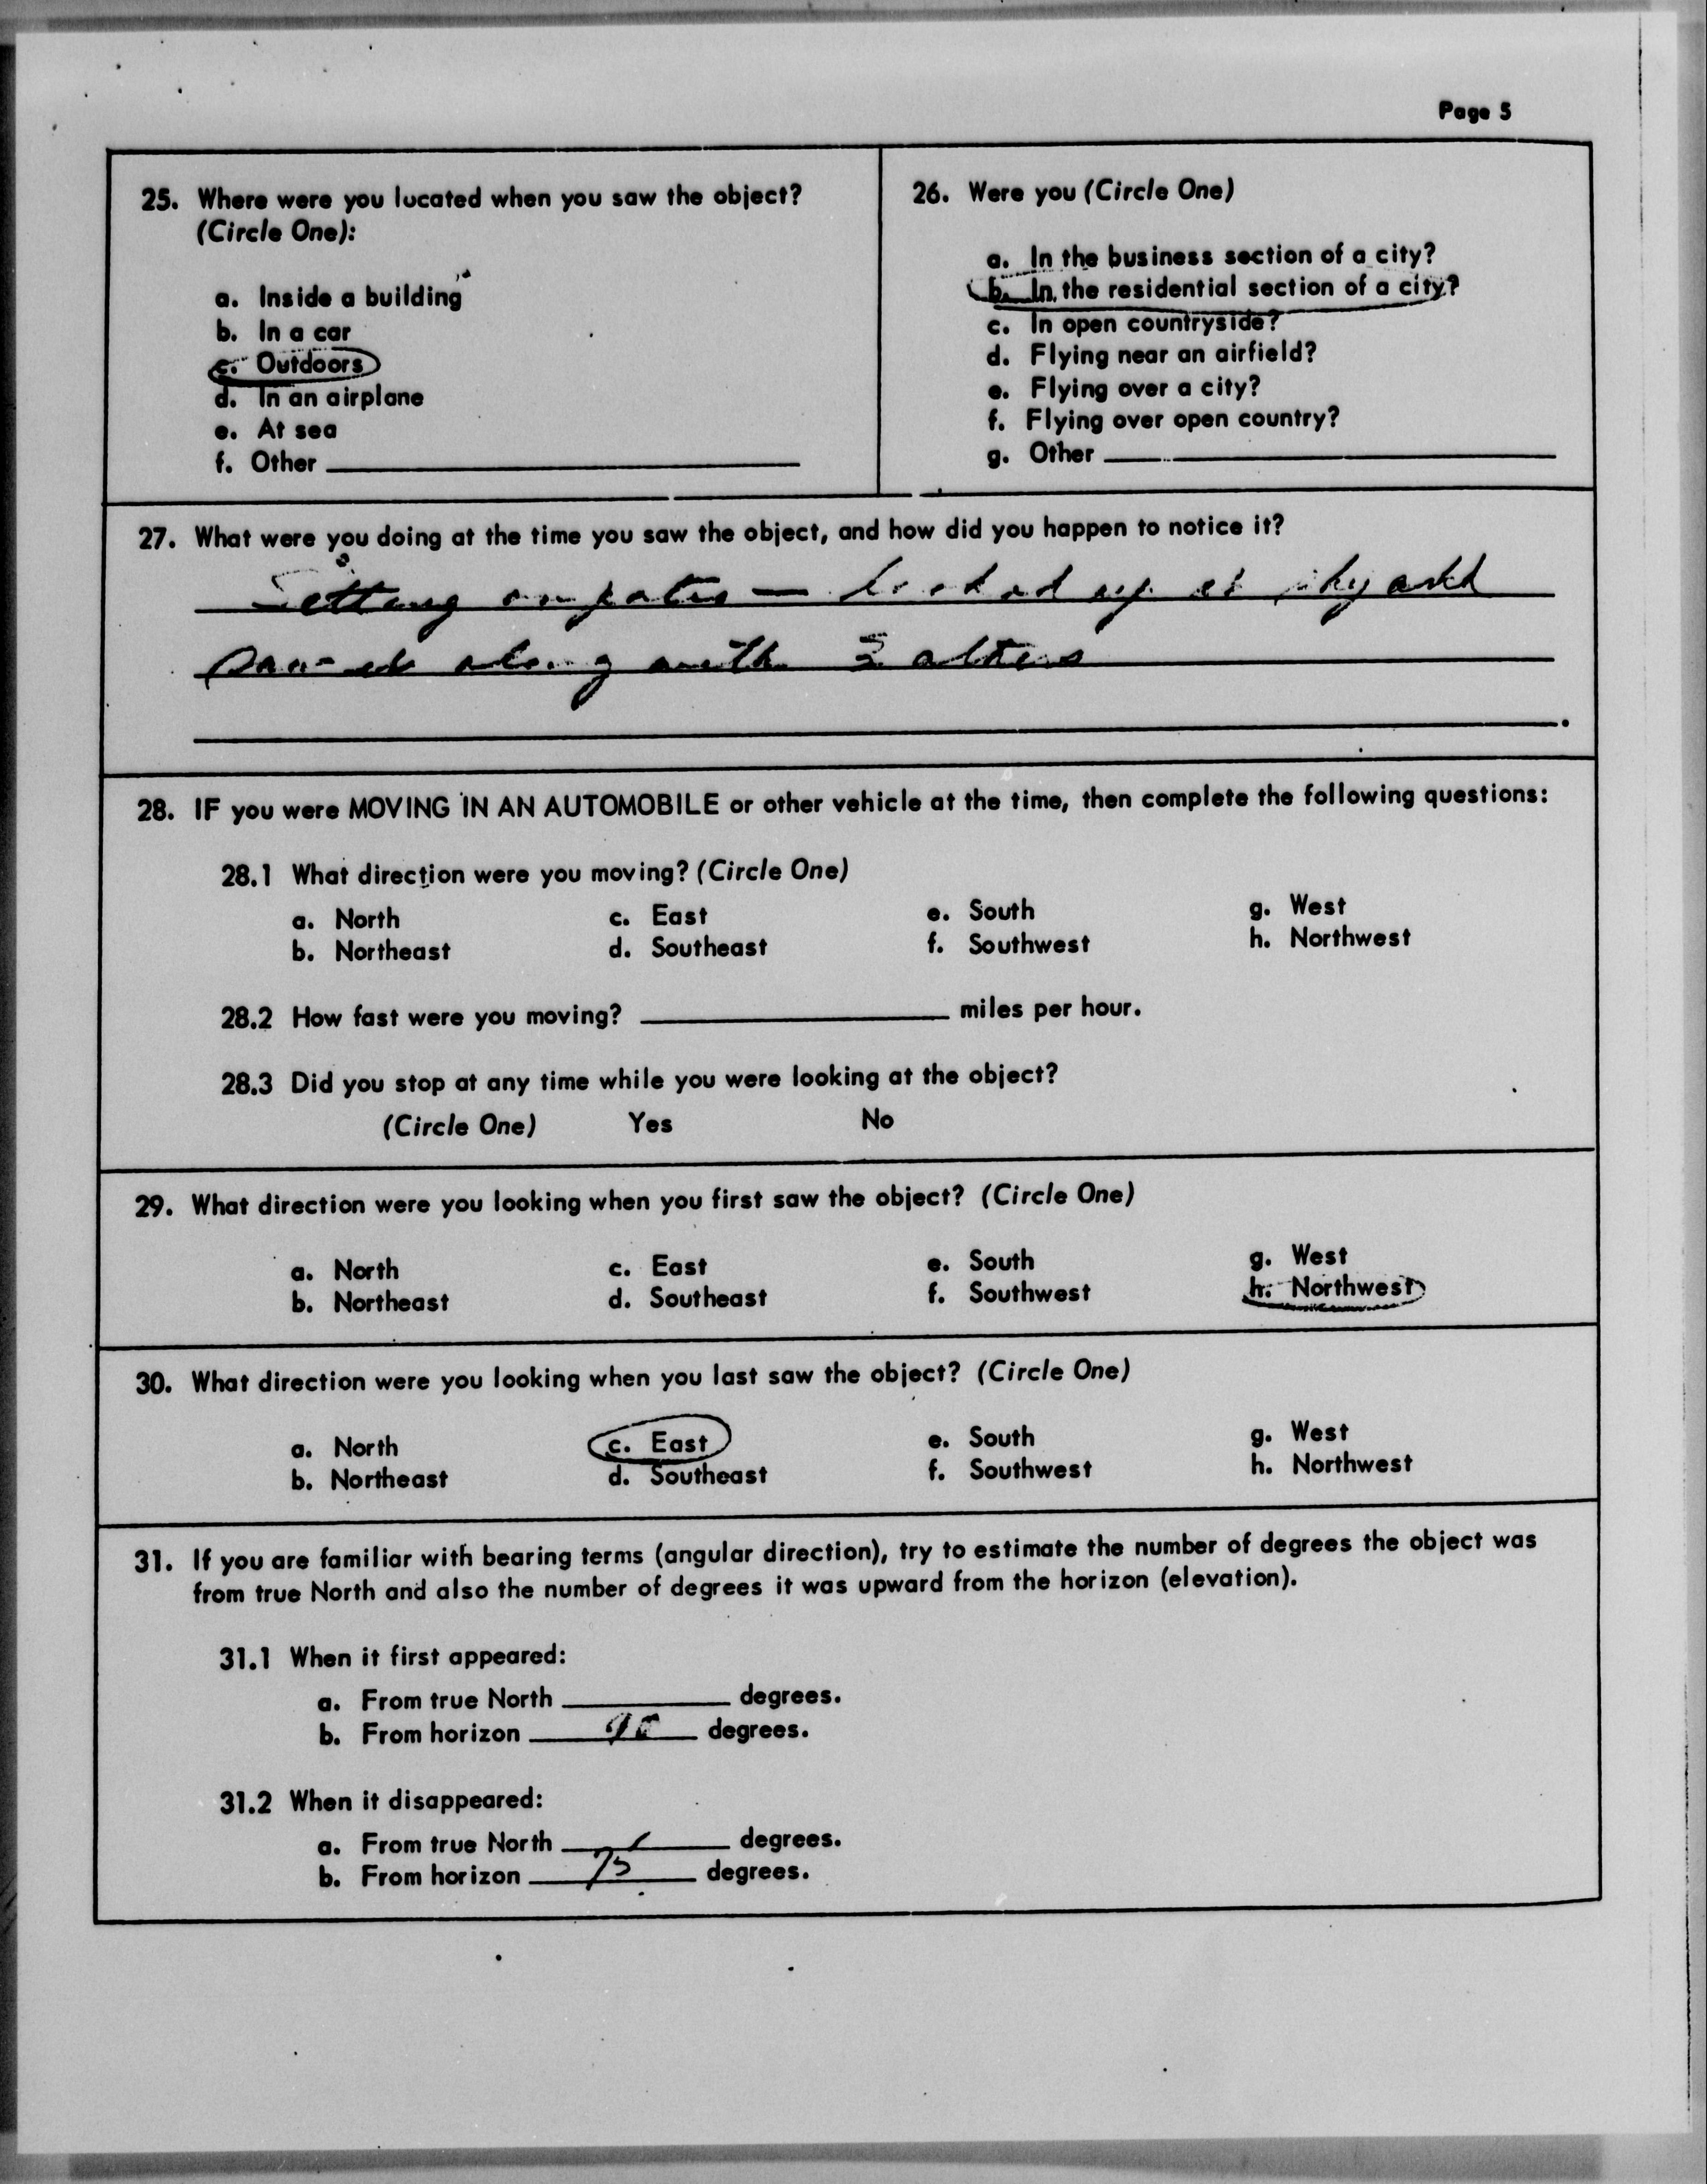 Page 5
25. Where were you located when you saw the object?
(Circle One):
a. Inside a building
b. In a car
c. Outdoors
d. In an airplane
e. At sea
f. Other
26. Were you (Circle One)
a. In the business section of a city?
b. In the residential section of a city?
c. In open countryside?
d. Flying near an airfield?
e. Flying over a city?
f. Flying over open country?
g. Other
27. What were you doing at the time you saw the object, and how did you happen to notice it?
Setting on patio — looked up at sky and
saw it along with others
28. IF you were MOVING IN AN AUTOMOBILE or other vehicle at the time, then complete the following questions:
28.1 What direction were you moving? (Circle One)
a. North c. East e. South g. West
b. Northeast d. Southeast f. Southwest h. Northwest
28.2 How fast were you moving? miles per hour.
28.3 Did you stop at any time while you were looking at the object?
(Circle One) Yes No
29. What direction were you looking when you first saw the object? (Circle One)
a. North c. East e. South g. West
b. Northeast d. Southeast f. Southwest h. Northwest
30. What direction were you looking when you last saw the object? (Circle One)
a. North c. East e. South g. West
b. Northeast d. Southeast f. Southwest h. Northwest
31. If you are familiar with bearing terms (angular direction), try to estimate the number of degrees the object was
from true North and also the number of degrees it was upward from the horizon (elevation).
31.1 When it first appeared:
a. From true North degrees.
b. From horizon 90 degrees.
31.2 When it disappeared:
a. From true North degrees.
b. From horizon 75 degrees.